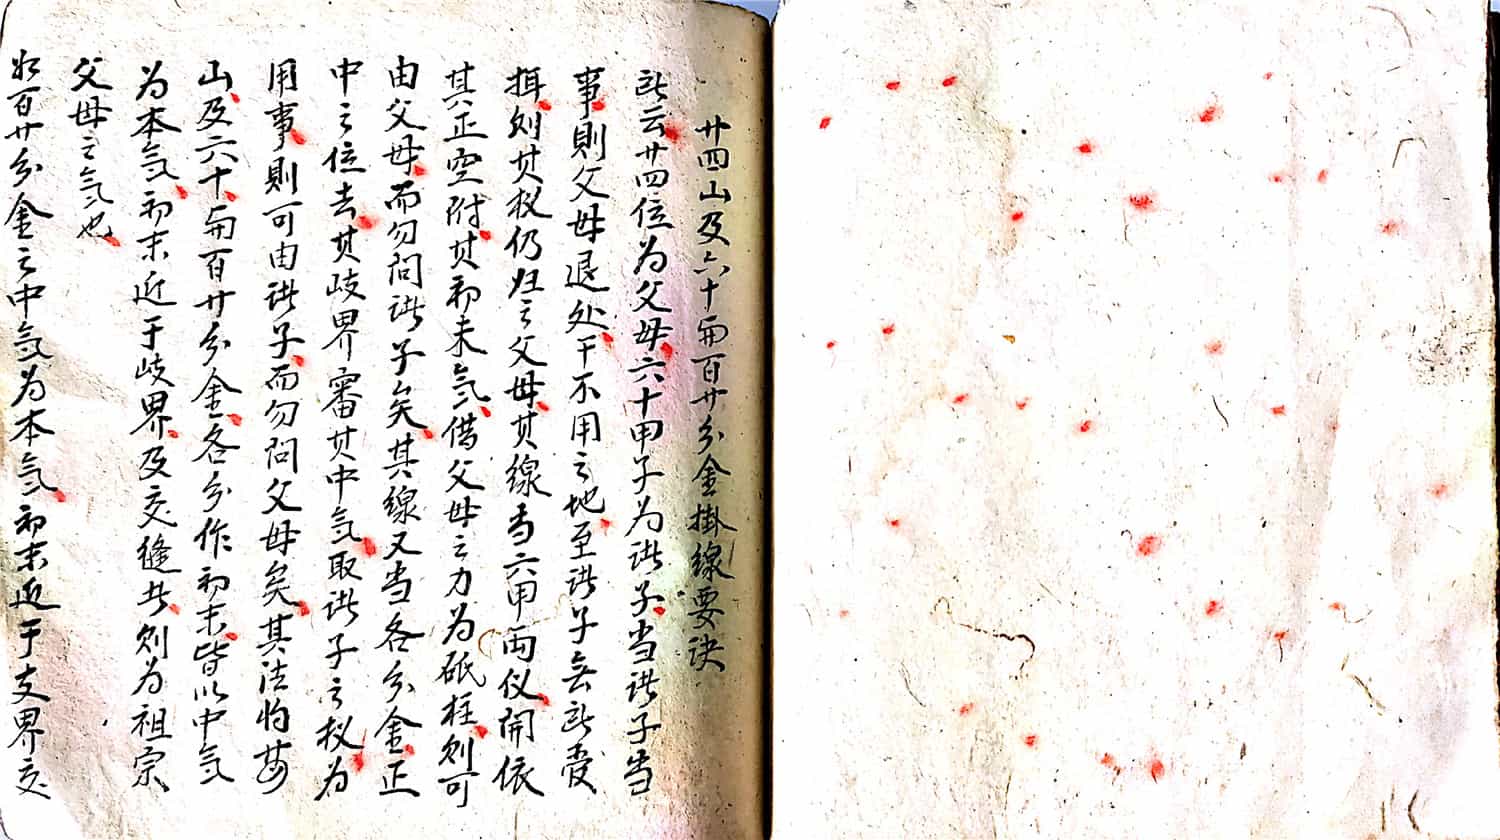 廿四山及六十甫百廿分金掛線要诀
此云廿四位为父母六十甲子为诸子当诸子当
事則父母退处于不用之地至诸子无此受
揖则其权仍归之父母其線当六甲両仪開依
其正空附其初末气借父母之力为砥柱则可
由父母而勿问诸子矣其線又当各分金正
中之位去其歧界審其中气取诸子之权为
用事則可由诸子而勿问父母矣其法惟苗
山及六十甫百廿分金各分作初末皆以中气
为本气初末近于歧界及交縫者则为祖宗
父母之气也
如百廿分金之中气为本气初末近于支界交